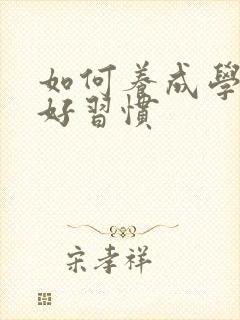 如何养成學
好習慣
宋孝祥